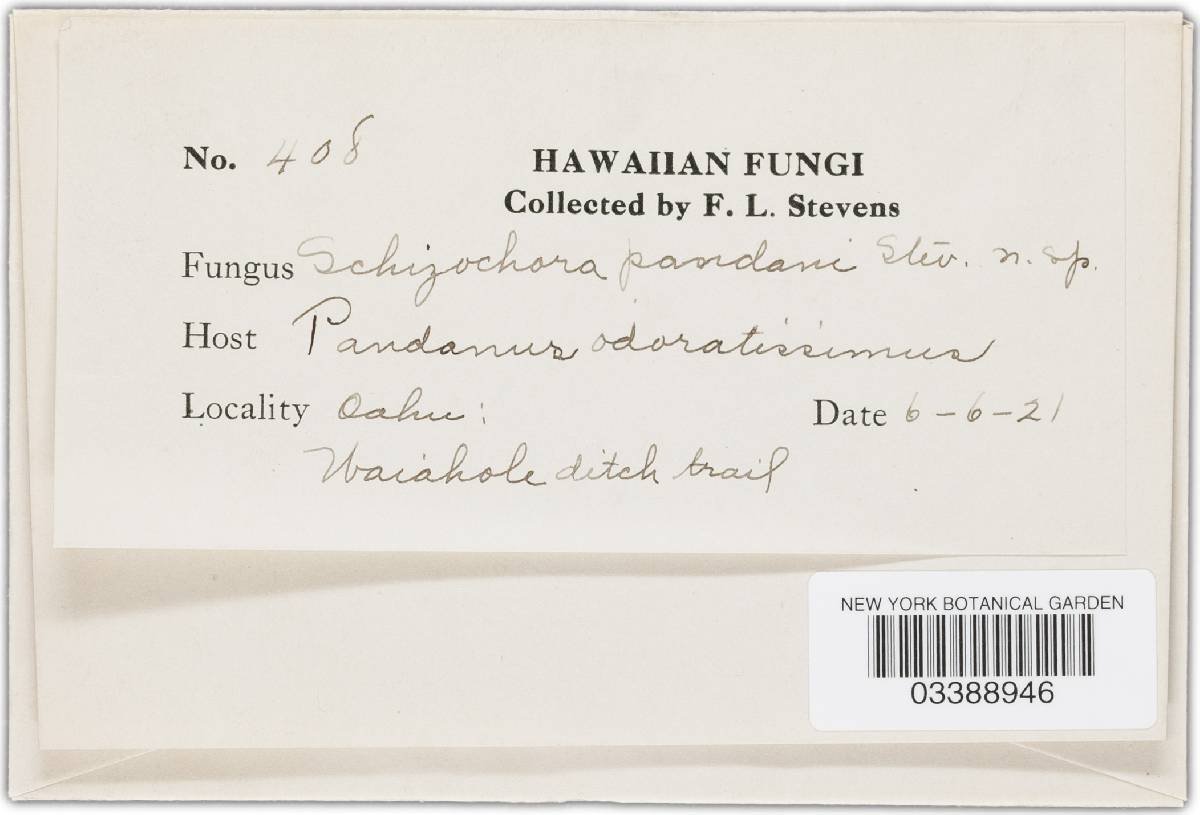 No. 408
HAWAIIAN FUNGI
Collected by F. L. Stevens
Fungus Schizochora pandani Stev. n. sp.
Host Pandanus odoratissimus
Locality Oahu: Date 6-6-21
Waiahole ditch trail
NEW YORK BOTANICAL GARDEN
03388946